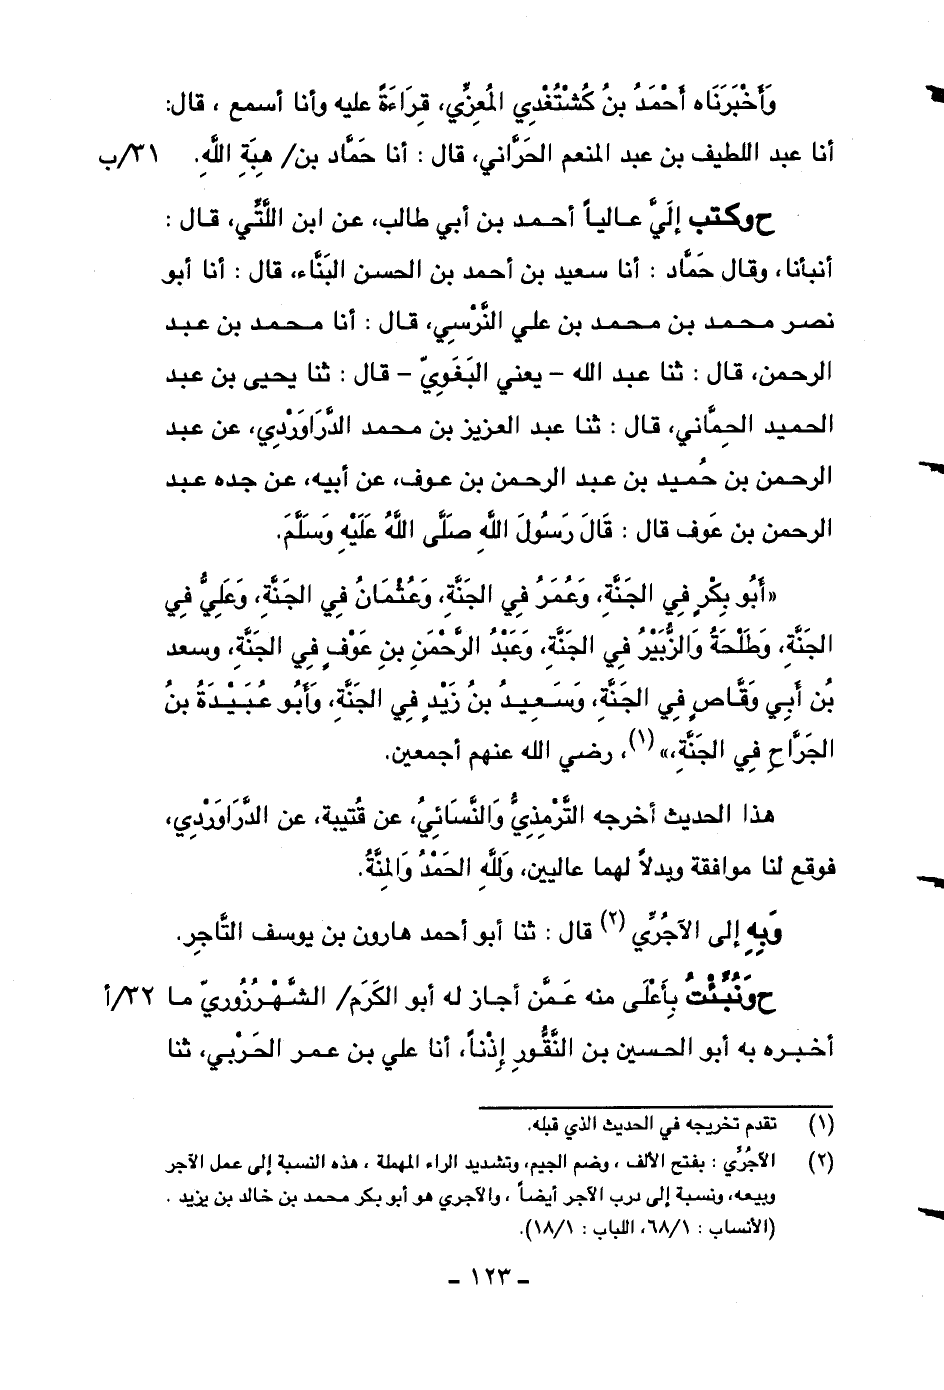 وَأَخْبَرَنَاه أَحْمَدُ بنُ كُشْتُغْدِي المُعِزِّي، قِرَاءَةً عليه وأنا أسمع ، قال:
أنا عبد اللطيف بن عبد المنعم الحَرَّاني، قال : أنا حَمَّاد بن/ هِبَةِ اللَّهِ. ٣١/ب
ح وكتب إلَيَّ عالياً أحمد بن أبي طالب، عن ابن اللَّتِّي، قال :
أنبأنا، وقال حَمَّاد : أنا سعيد بن أحمد بن الحسن البَنَّاء، قال : أنا أبو
نصر محمد بن محمد بن علي النَّرْسِي، قال : أنا محمد بن عبد
الرحمن، قال : ثنا عبد الله – يعني البَغَوِيّ – قال : ثنا يحيى بن عبد
الحميد الحِمَّاني، قال : ثنا عبد العزيز بن محمد الدَّرَاوَرْدِي، عن عبد
الرحمن بن حُميد بن عبد الرحمن بن عوف، عن أبيه، عن جده عبد
الرحمن بن عَوف قال : قَالَ رَسُولَ اللَّهِ صَلَّى اللَّهُ عَلَيْهِ وَسَلَّمَ.
«أَبُو بكْرٍ فِي الجَنَّةِ، وَعُمَرُ فِي الجَنَّةِ، وَعُثْمَانُ فِي الجَنَّةِ، وَعَلِيٌّ فِي
الجَنَّةِ، وَطَلْحَةُ وَالزُّبَيْرُ فِي الجَنَّةِ، وَعَبْدُ الرَّحْمَنِ بنِ عَوْفٍ فِي الجَنَّةِ، وسعد
بْن أَبِي وَقَّاصٍ فِي الجَنَّةِ، وَسَعِيدُ بنُ زَيْدٍ فِي الجَنَّةِ، وَأَبُو عُبَيْدَةُ بنُ
الجَرَّاحِ فِي الجَنَّةِ،»(١)، رضي الله عنهم أجمعين.
هذا الحديث أخرجه التَّرْمِذِيُّ وَالنَّسَائِيُ، عن قُتيبة، عن الدَّرَاوَرْدِي،
فوقع لنا موافقة وبدلاً لهما عاليين، وَللَّهِ الحَمْدُ وَالمِنَّةُ.
وَبِهِ إلى الآجُرِّي(٢) قال : ثنا أبو أحمد هارون بن يوسف التَّاجِر.
ح وَنُبِّئْتُ بِأَعْلَى منه عَمَّن أجاز له أبو الكَرَم/ الشَّهْرُزُورِيّ ما ٣٢/أ
أخبره به أبو الحسين بن النَّقُّورِ إذْناً، أنا علي بن عمر الحَرْبي، ثنا
(١) تقدم تخريجه في الحديث الذي قبله.
(٢) الآجُرِّي : بفتح الألف ، وضم الجيم، وتشديد الراء المهملة ، هذه النسبة إلى عمل الآجر
وبيعه، ونسبة إلى درب الآجر أيضاً ، والآجري هو أبو بكر محمد بن خالد بن يزيد .
(الأنساب : ٦٨/١، اللباب : ١٨/١).
- ١٢٣ -